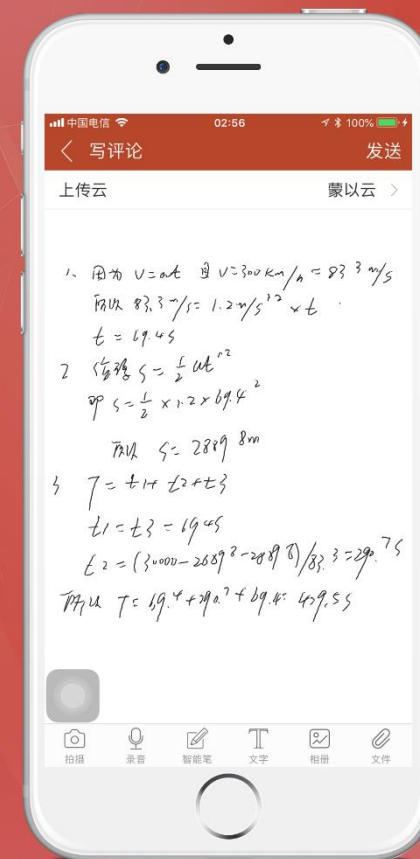 中国电信 02:56 100%
写评论 发送
上传云 蒙以云
1、因为 V=at 且 V=300km/h=83.3m/s
所以 83.3m/s=1.2m/s^2 × t
t=69.4s
2 s=1/2 at^2
即 s=1/2×1.2×69.4^2
所以 s=2889.8m
3 T=t1+t2+t3
t1=t3=69.4s
t2=(30000-2889.8-2889.8)/83.3=290.7s
所以 T=69.4+290.7+69.4=429.5s
拍摄 录音 智能笔 文字 相册 文件